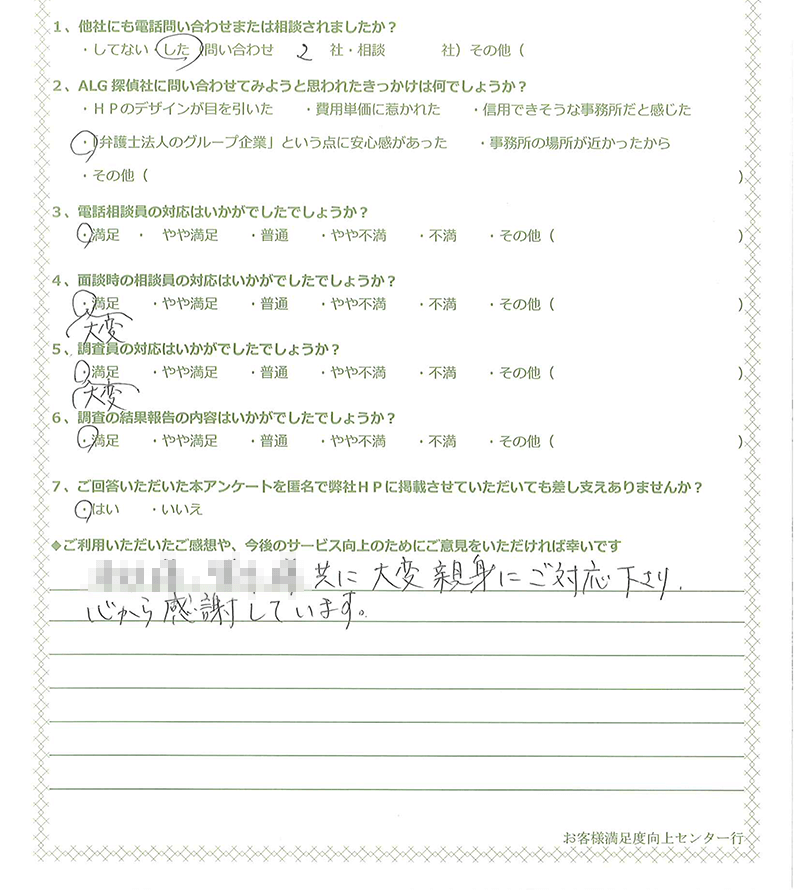 1、他社にも電話問い合わせまたは相談されましたか？
・してない・した（問い合わせ 2 社・相談 社）その他（
2、ALG探偵社に問い合わせてみようと思われたきっかけは何でしょうか？
・HPのデザインが目を引いた ・費用単価に惹かれた ・信用できそうな事務所だと感じた
・「弁護士法人のグループ企業」という点に安心感があった ・事務所の場所が近かったから
・その他（ ）
3、電話相談員の対応はいかがでしたでしょうか？
・満足 ・ やや満足 ・普通 ・やや不満 ・不満 ・その他（ ）
4、面談時の相談員の対応はいかがでしたでしょうか？
・満足 ・やや満足 ・普通 ・やや不満 ・不満 ・その他（ ）
大変
5、調査員の対応はいかがでしたでしょうか？
・満足 ・やや満足 ・普通 ・やや不満 ・不満 ・その他（ ）
大変
6、調査の結果報告の内容はいかがでしたでしょうか？
・満足 ・やや満足 ・普通 ・やや不満 ・不満 ・その他（ ）
7、ご回答いただいた本アンケートを匿名で弊社HPに掲載させていただいても差し支えありませんか？
・はい ・いいえ
◆ご利用いただいたご感想や、今後のサービス向上のためにご意見をいただければ幸いです
共に大変親身にご対応下さり、
心から感謝しています。
お客様満足度向上センター行